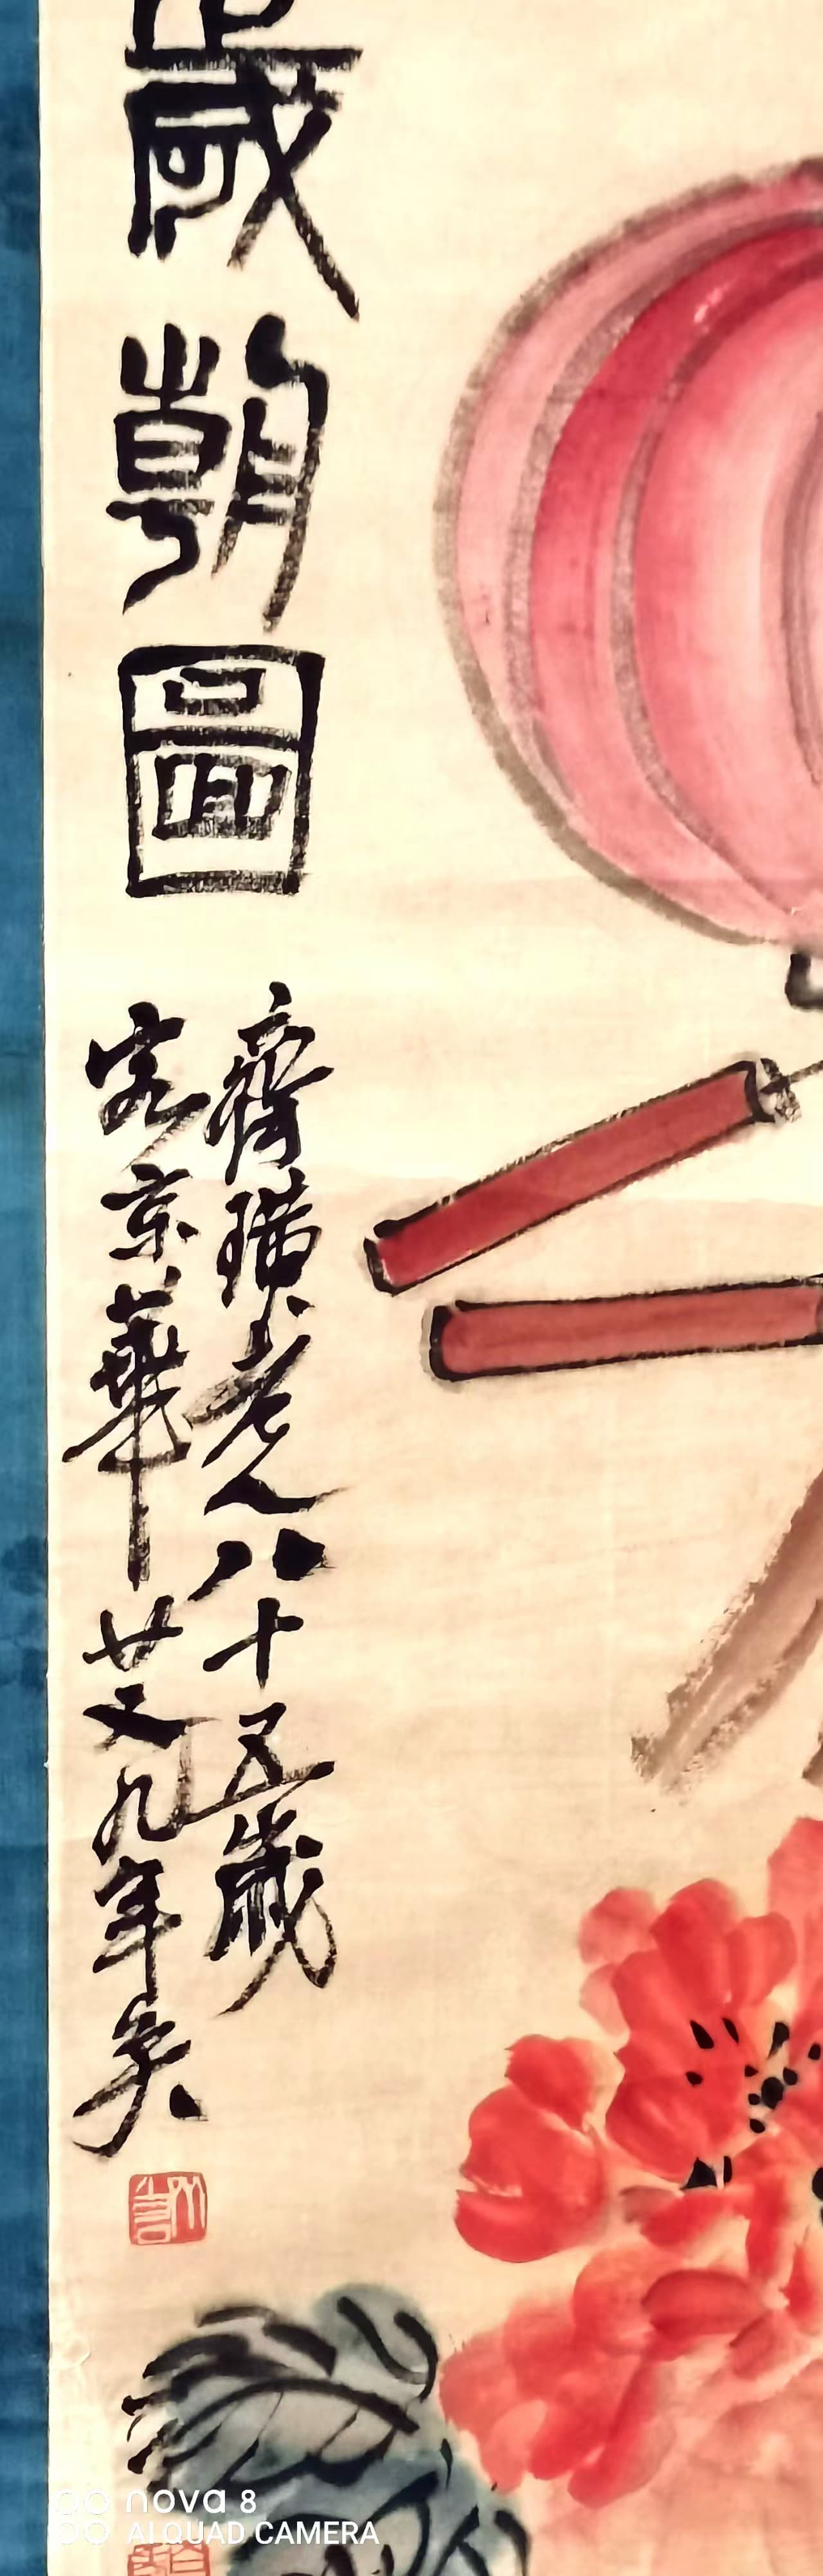 歲朝圖
齊璜老人八十五歲
客京華廿又九年矣
nova 8
AI QUAD CAMERA